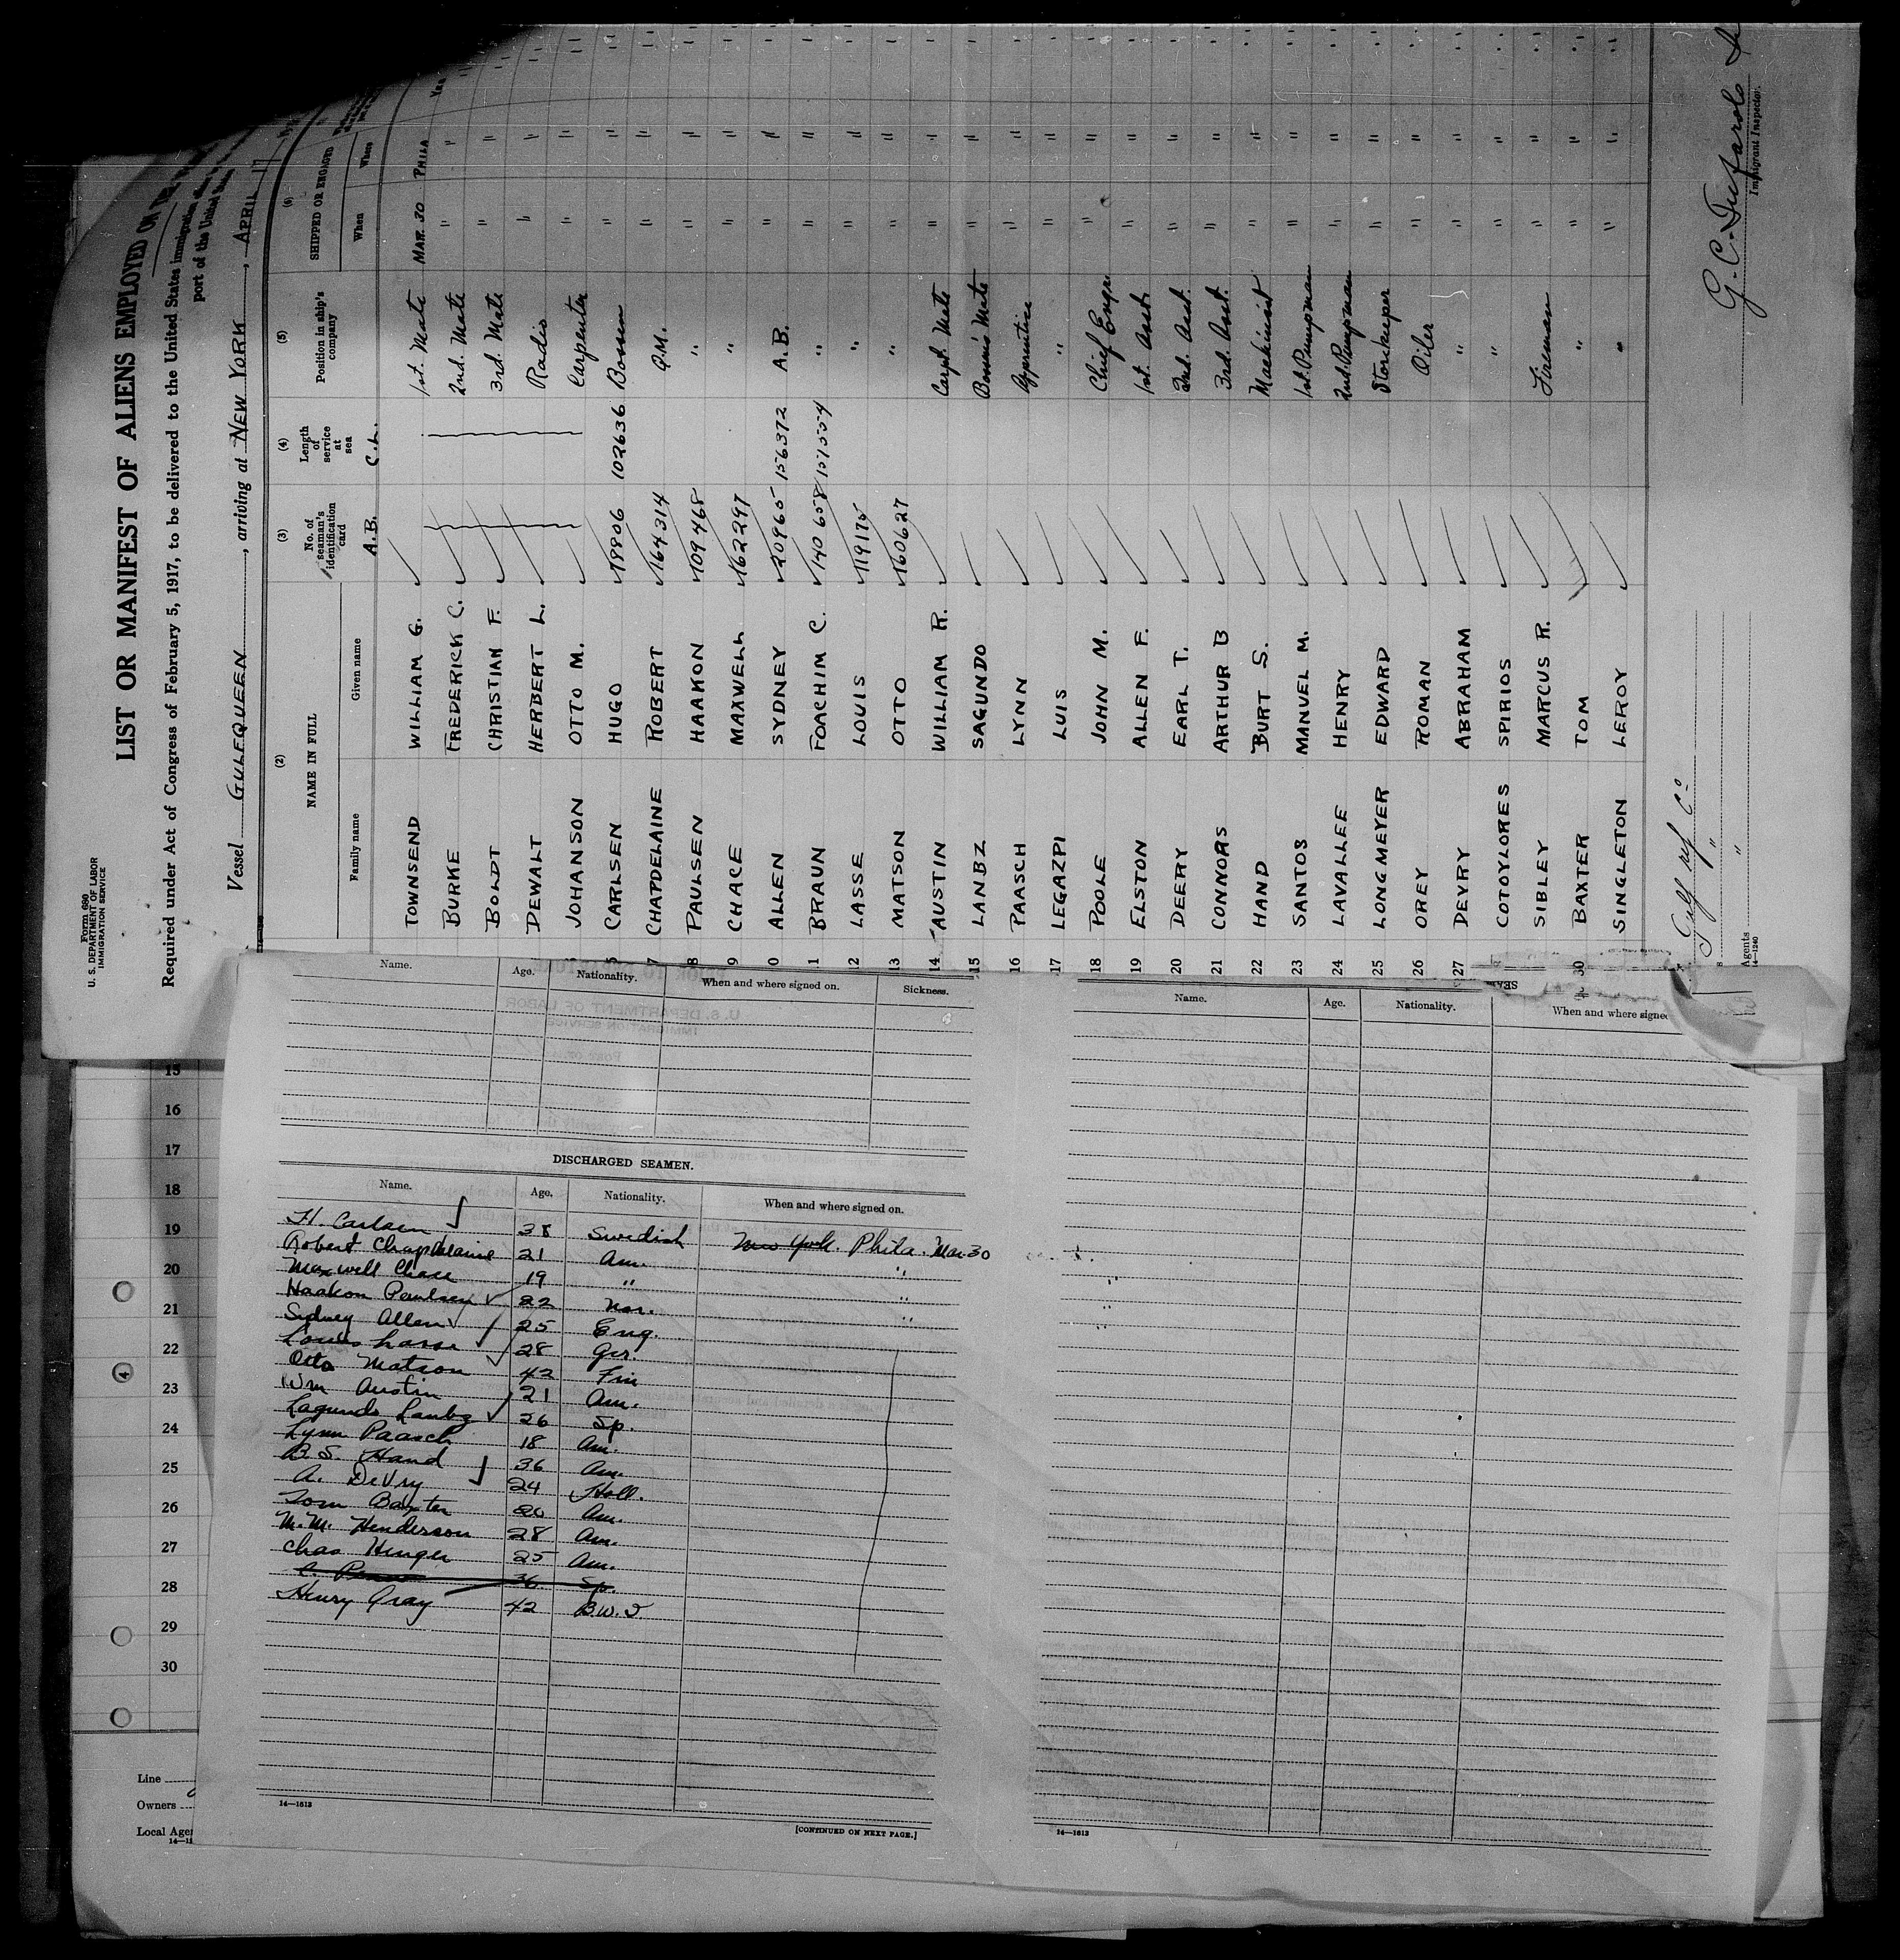 Form 680
U. S. DEPARTMENT OF LABOR
IMMIGRATION SERVICE
LIST OR MANIFEST OF ALIENS EMPLOYED ON THE
Required under Act of Congress of February 5, 1917, to be delivered to the United States immigration
port of the United States
Vessel GULFQUEEN, arriving at NEW YORK, APRIL
(2) (3) (4) (5) (6)
NAME IN FULL No. of seaman's identification card Length of service at sea Position in ship's company SHIPPED OR ENGAGED
Family name Given name A.B. C.L. When Where
TOWNSEND WILLIAM G. 1st. Mate MAR. 30 PHILA
BURKE FREDERICK C. 2nd. Mate " "
BOLDT CHRISTIAN F. 3rd. Mate " "
DEWALT HERBERT L. Radio " "
JOHANSON OTTO M. Carpenter " "
CARLSEN HUGO 18806 102636 Bosun " "
7 CHAPDELAINE ROBERT 164314 Q.M. " "
8 PAULSEN HAAKON 109468 " " "
9 CHACE MAXWELL 162297 " " "
10 ALLEN SYDNEY 20965 156372 A.B. " "
11 BRAUN FOACHIM C. 140658 151554 " " "
12 LASSE LOUIS 119175 " " "
13 MATSON OTTO 160627 " " "
14 AUSTIN WILLIAM R. Carpt. Mate " "
15 LANBZ SAGUNDO Bosun's Mate " "
16 PAASCH LYNN Apprentice " "
17 LEGAZPI LUIS " " "
18 POOLE JOHN M. Chief Engr. " "
19 ELSTON ALLEN F. 1st. Asst. " "
20 DEERY EARL T. 2nd. Asst. " "
21 CONNORS ARTHUR B 3rd. Asst. " "
22 HAND BURT S. Machinist " "
23 SANTOS MANUEL M. 1st. Pumpman " "
24 LAVALLEE HENRY 2nd. Pumpman " "
25 LONGMEYER EDWARD Storekeeper " "
26 OREY ROMAN Oiler " "
27 DEVRY ABRAHAM " " "
COTOYLORES SPIRIOS " " "
SIBLEY MARCUS R. Fireman " "
30 BAXTER TOM " " "
SINGLETON LEROY " " "
Gulf ref Co
" "
Agents "
14—1240
G. C.
Immigrant Inspector.
Name. Age. Nationality. When and where signed on. Sickness.
DISCHARGED SEAMEN.
Name. Age. Nationality. When and where signed on.
H. Carlsen 38 Swedish New York. Phila. Mar. 30
Robert Chapdelaine 21 Am. "
Maxwell Chace 19 " "
Haakon Paulsen 22 Nor. "
Sidney Allen 25 Eng.
Louis Lasse 28 Ger.
Otto Matson 42 Fin
Wm Austin 21 Am.
Lagundo Lanbz 26 Sp.
Lynn Paasch 18 Am.
B. S. Hand 36 Am.
A. DeVry 24 Holl.
Tom Baxter 20 Am.
M. M. Henderson 28 Am.
Chas Henger 25 Am.
36 Sp.
Henry Gray 42 B.W.I
14—1613
[CONTINUED ON NEXT PAGE.]
Name. Age. Nationality. When and where signed
14—1613
15
16
17
18
19
20
21
22
23
24
25
26
27
28
29
30
Line
Owners
Local Agen